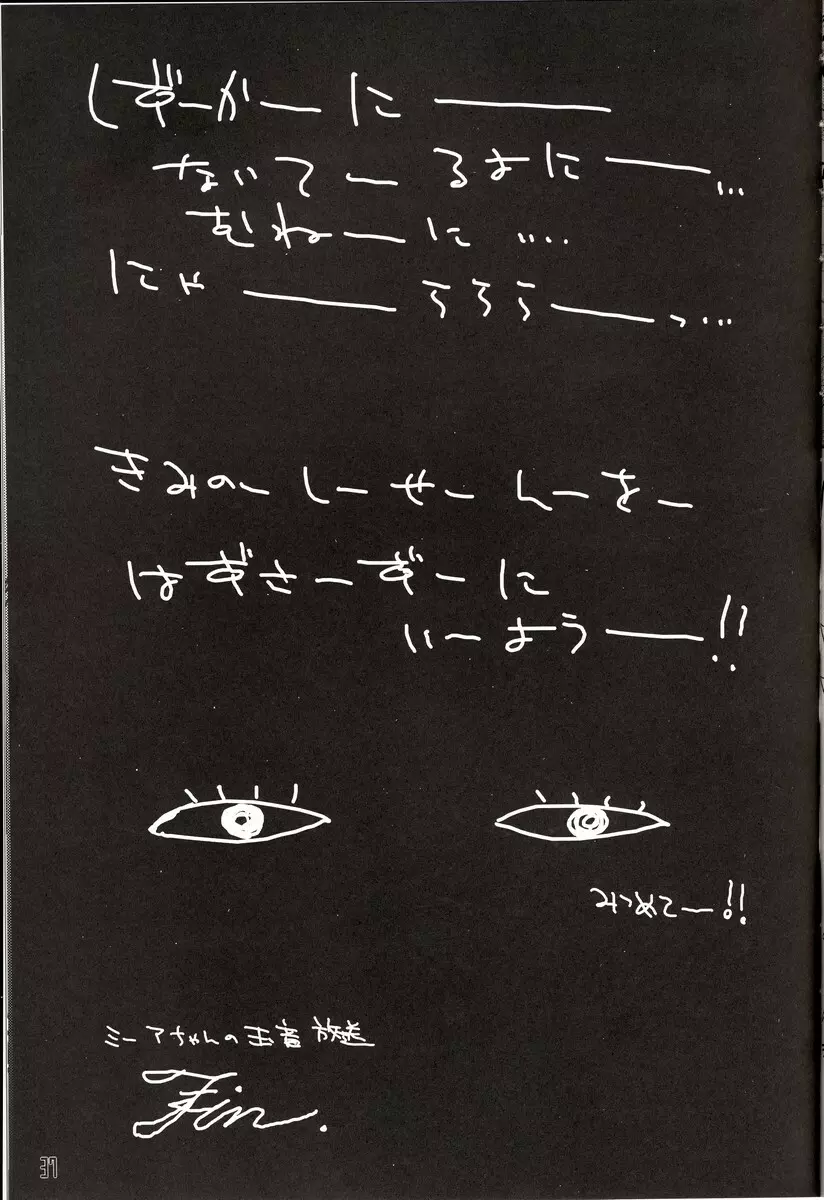 しずーがーに———
ないてーるよに——…
むねーに‥‥
にゃ———ううう——っ…
きみのーしーせーんーをー
はずさーずーに
いーよう——!!
みつめてー!!
ミーアちゃんの玉音放送
Fin.
37